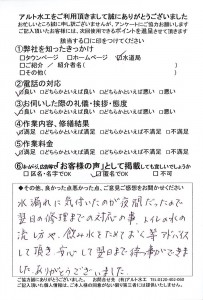 アルト水工をご利用頂きまして誠にありがとうございました
お忙しいところ誠に申し訳ございませんが、アンケートにご協力お願いします
ご記入頂いたお客様には、次回使用できるポイントを進呈させて頂きます
該当する口に印をつけてください
①弊社を知ったきっかけ
□タウンページ □ホームページ ☑水道局
□ご紹介 / 紹介者名( )
□その他( )
②電話の対応
☑良い □どちらかといえば良い □どちらかといえば悪い □悪い
③お伺いした際の礼儀・挨拶・態度
☑良い □どちらかといえば良い □どちらかといえば悪い □悪い
④作業内容、修繕結果
☑満足 □どちらかといえば満足 □どちらかといえば不満足 □不満足
⑤作業料金
☑満足 □どちらかといえば満足 □どちらかといえば不満足 □不満足
「お客様の声」として掲載しても宜しいでしょうか
□匿名・名字でOK □不可
◆その他、良かった点悪かった点、ご意見ご感想をお聞かせください
水漏れに気付いたのが夜間だったので
翌日の修理までの対応の事、トイレの水の
流し方や、飲み水をためておく等アドバイス
して頂き、安心して翌日まで待つ事ができま
した。ありがとうございました。
ご協力誠にありがとうございました。 お問合せ先 (有)アルト水工 TEL 0120-602-060